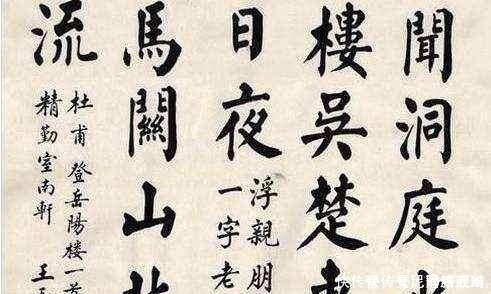 聞洞庭
樓吳楚
日夜
浮親朋
一字老
馬關山
流
杜甫登岳陽楼一首
精勤室南軒 王